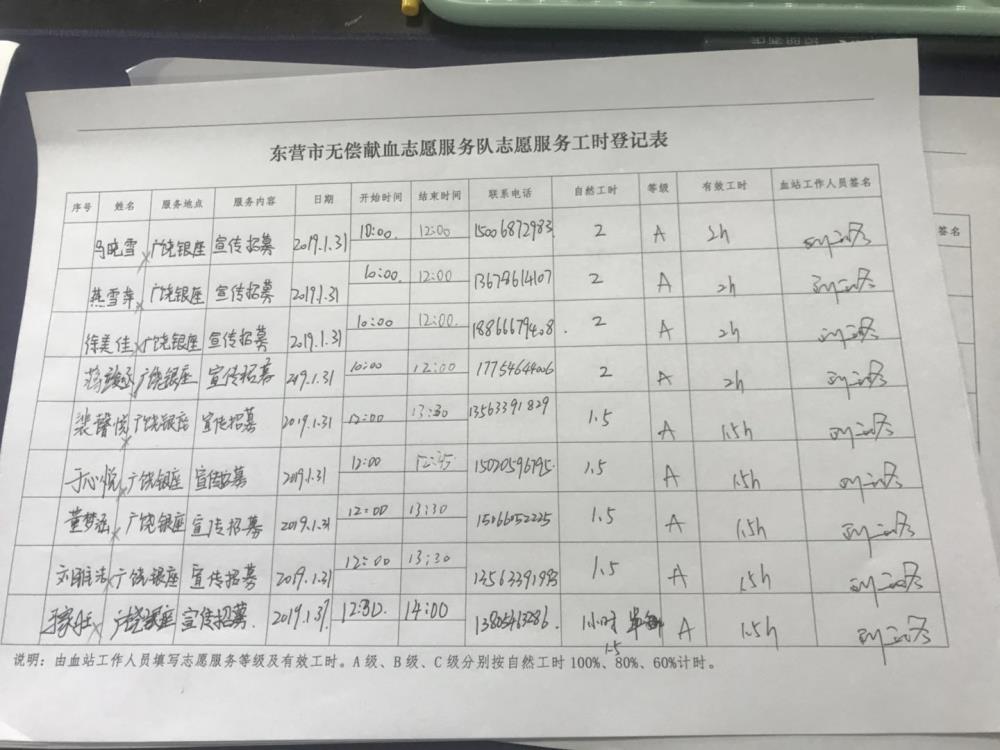 东营市无偿献血志愿服务队志愿服务工时登记表
序号 姓名 服务地点 服务内容 日期 开始时间 结束时间 联系电话 自然工时 等级 有效工时 血站工作人员签名
马晓雪 广饶银座 宣传招募 2019.1.31 10:00. 12:00 15006872983 2 A 2h
燕雪 广饶银座 宣传招募 2019.1.31 10:00. 12:00 13678614107 2 A 2h
徐美佳 广饶银座 宣传招募 2019.1.31 10:00 12:00. 18866679408. 2 A 2h
广饶银座 宣传招募 2019.1.31 10:00 12:00 17754644006 2 A 2h
裴馨悦 广饶银座 宣传招募 2019.1.31 12:00 13:30 13563391829 1.5 A 1.5h
于心悦 广饶银座 宣传招募 2019.1.31 12:00 15020596795 1.5 A 1.5h
董梦涵 广饶银座 宣传招募 2019.1.31 12:00 13:30 15066052225 1.5 A 1.5h
广饶银座 宣传招募 2019.1.31 12:00 13:30 13563391993 1.5 A 1.5h
广饶银座 宣传招募. 12:30. 14:00 13805463286. 1小时 A 1.5h
1.5
说明：由血站工作人员填写志愿服务等级及有效工时。A级、B级、C级分别按自然工时100%、80%、60%计时。
签名